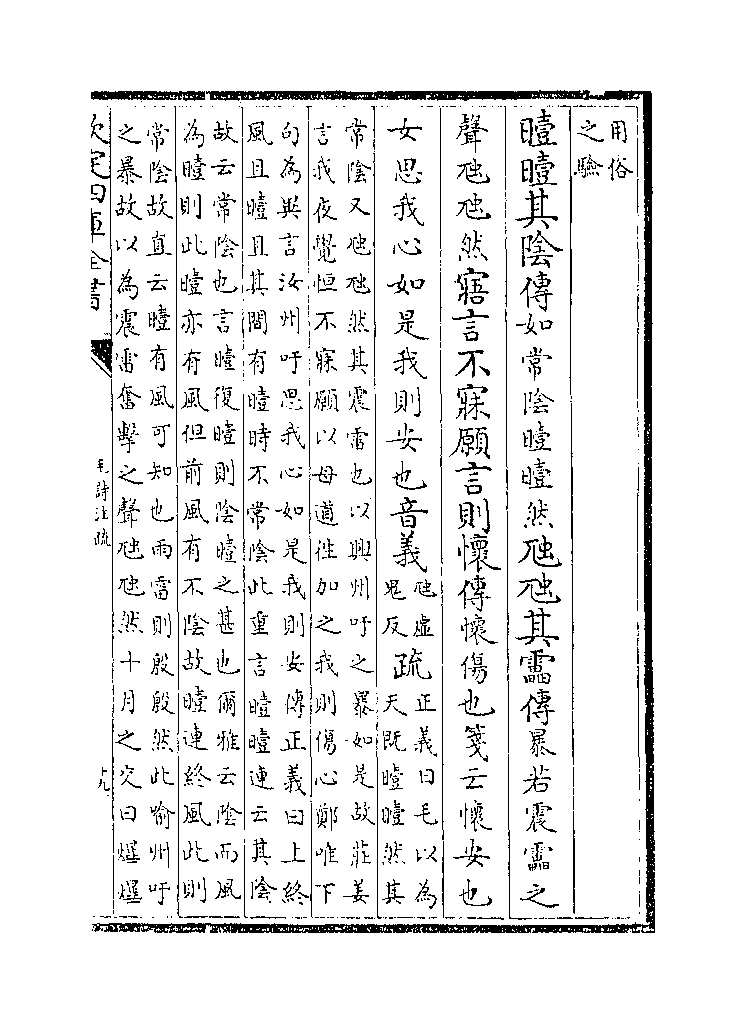 用俗
之驗
曀曀其陰傳如常陰曀曀然虺虺其靁傳暴若震靁之
聲虺虺然寤言不寐願言則懷傳懷傷也箋云懷安也
女思我心如是我則安也音義虺虛
鬼反疏正義曰毛以為
天既曀曀然其
常陰又虺虺然其震雷也以興州吁之暴如是故莊姜
言我夜覺恒不寐願以母道往加之我則傷心鄭唯下
句為異言汝州吁思我心如是我則安傳正義曰上終
風且曀且其間有曀時不常陰此重言曀曀連云其陰
故云常陰也言曀復曀則陰曀之甚也爾雅云陰而風
為曀則此曀亦有風但前風有不陰故曀連終風此則
常陰故直云曀有風可知也雨雷則殷殷然此喻州吁
之暴故以為震雷奮擊之聲虺虺然十月之交曰爗爗
欽定四庫全書
毛詩注疏
十九